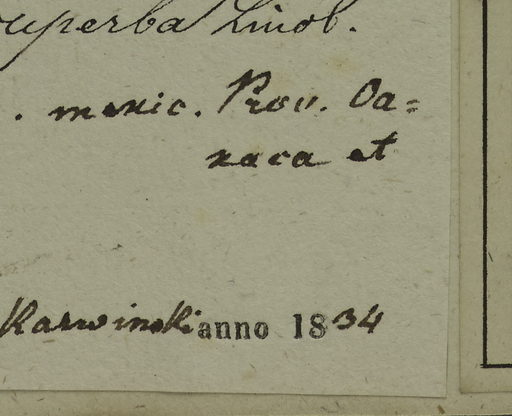 superba Lindl.
. mexic. Prov. Oa=
xaca et
Karwinski anno 1834